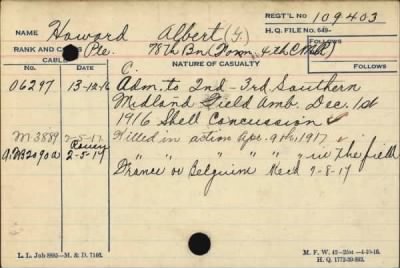 REGT'L NO 109403
NAME Howard Albert (G.)
H. Q. FILE NO. 649-
RANK AND CORPS Pte. 78th Bn (Form. 4th C.M.R.)
FOLLOWS
CABLE
NATURE OF CASUALTY
NO. DATE
FOLLOWS
C.
06297 13-12-16 Adm. to 2nd - 3rd Southern
Midland Field Amb. Dec. 1st
1916 Shell Concussion ✓
M-3889 2-5-17 Killed in action Apr. 9th, 1917 ✓
Rouen
2-5-17 " " " " " " in the field
France or Belgium 7-8-17
L. L. Job 8895—M. & D. 7166.
M. F. W. 42—
H. Q. 1772-39-893.